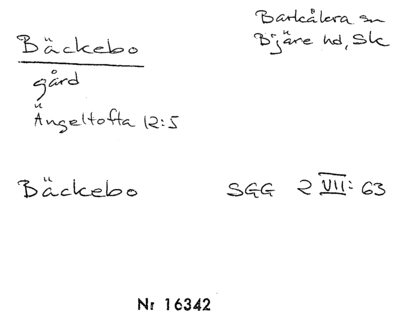 Barkåkra sn
Bjäre hd, Sk
Bäckebo
gård
Ängeltofta 12:5
Bäckebo SGG 2 VII: 63
Nr 16342